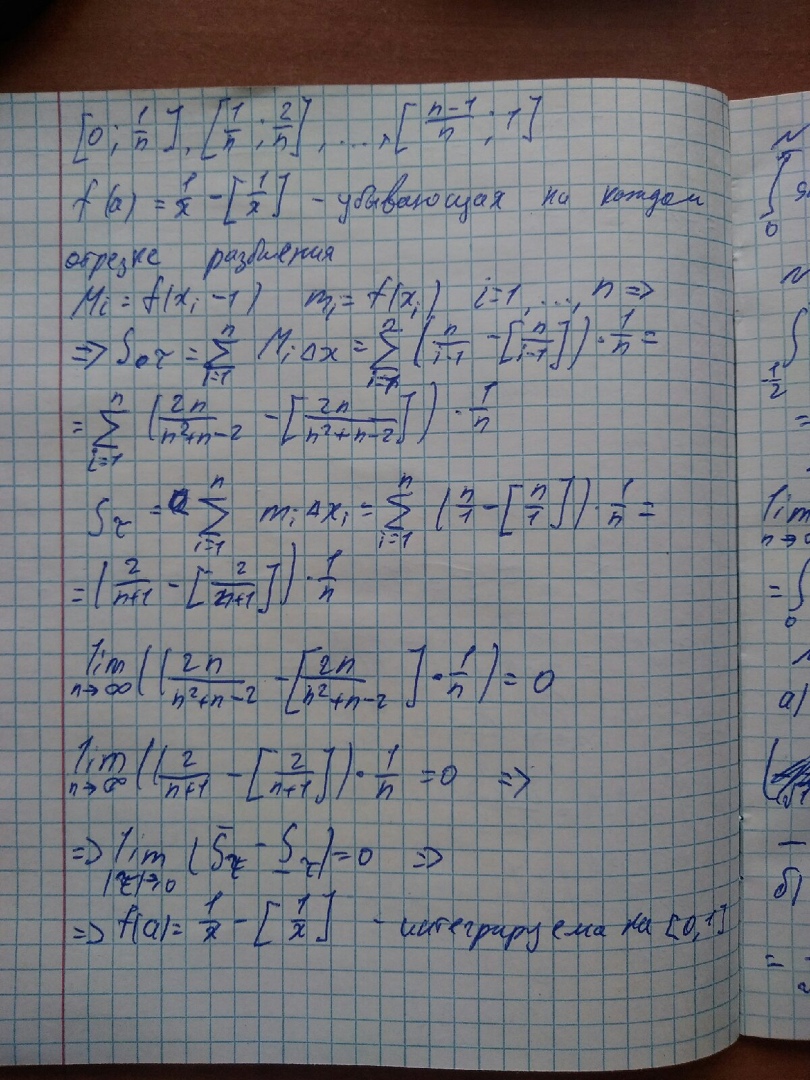 [0; 1/n], [1/n; 2/n], ..., [n-1/n; 1]
f(a) = 1/x - [1/x] - убывающая на каждом
отрезке разбиения
Mi = f(xi - 1) mi = f(xi) i=1, ..., n =>
=> Soτ = ∑ⁿᵢ₌₁ Mi Δx = ∑ⁿᵢ₌₁ (n/i-1 - [n/i-1]) · 1/n =
= ∑ⁿᵢ₌₁ (2n/n²+n-2 - [2n/n²+n-2]) · 1/n
Sτ = ∑ⁿᵢ₌₁ mi Δxi = ∑ⁿᵢ₌₁ (n/1 - [n/1]) · 1/n =
= (2/n+1 - [2/n+1]) · 1/n
lim n→∞ ((2n/n²+n-2 - [2n/n²+n-2] · 1/n) = 0
lim n→∞ ((2/n+1 - [2/n+1]) · 1/n = 0 =>
=> lim |τ|→0 (S̄τ - S̲τ) = 0 =>
=> f(a) = 1/x - [1/x] - интегрируема на [0,1]